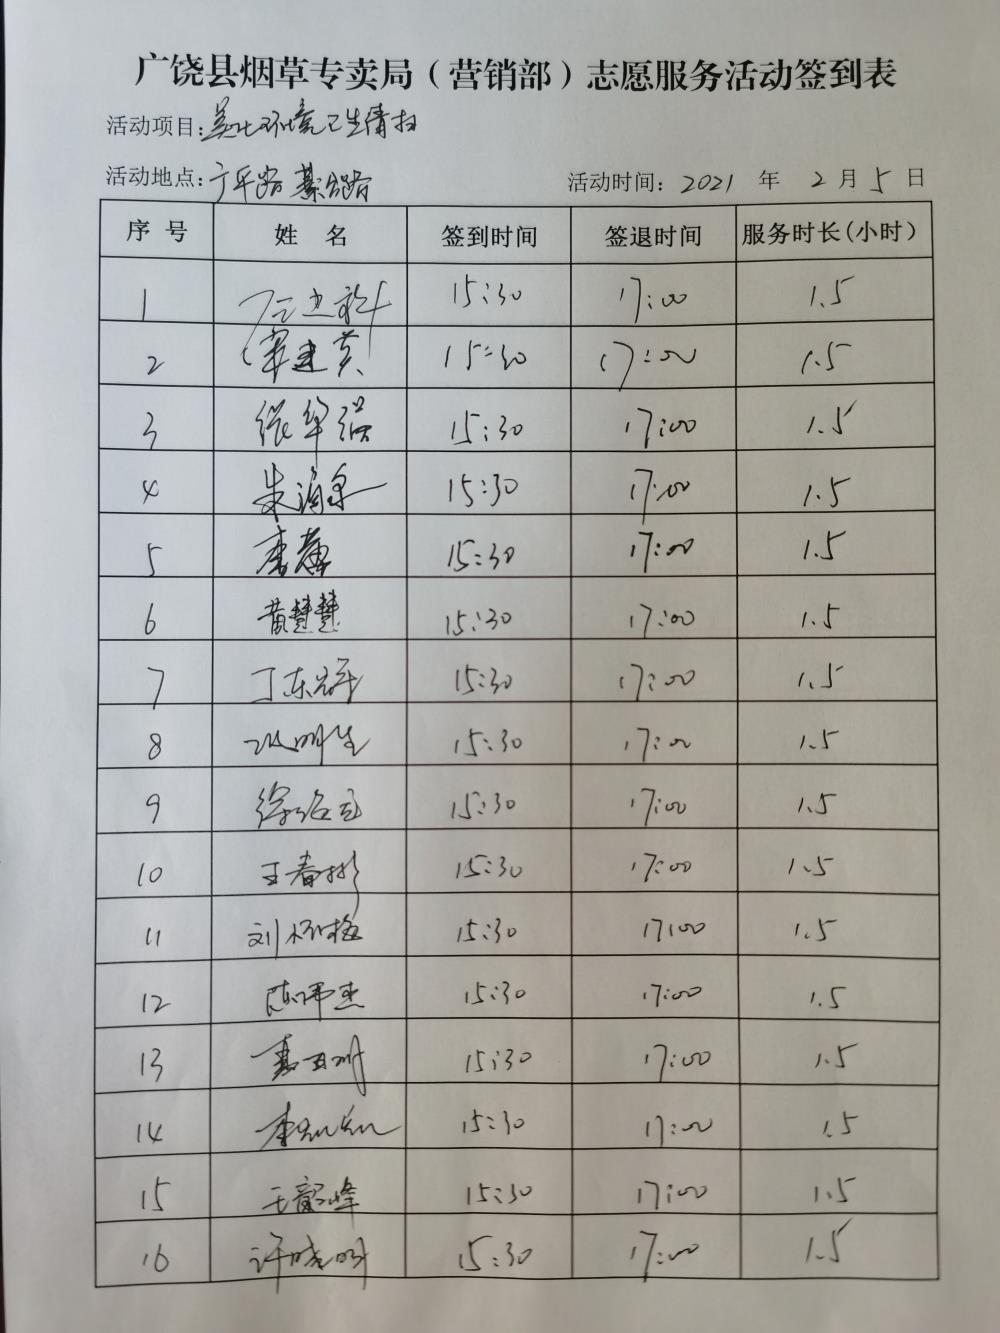 广饶县烟草专卖局（营销部）志愿服务活动签到表
活动项目:美化环境卫生清扫
活动地点:广平路 綦公路 活动时间: 2021 年 2 月 5 日
序 号 姓 名 签到时间 签退时间 服务时长(小时)
1 15:30 17:00 1.5
2 15:30 17:00 1.5
3 张华强 15:30 17:00 1.5
4 15:30 17:00 1.5
5 李薇 15:30 17:00 1.5
6 黄慧慧 15:30 17:00 1.5
7 丁东辉 15:30 17:00 1.5
8 15:30 17:00 1.5
9 15:30 17:00 1.5
10 王春彬 15:30 17:00 1.5
11 刘怀梅 15:30 17:00 1.5
12 陈伟杰 15:30 17:00 1.5
13 15:30 17:00 1.5
14 15:30 17:00 1.5
15 王韶峰 15:30 17:00 1.5
16 许晓明 15:30 17:00 1.5